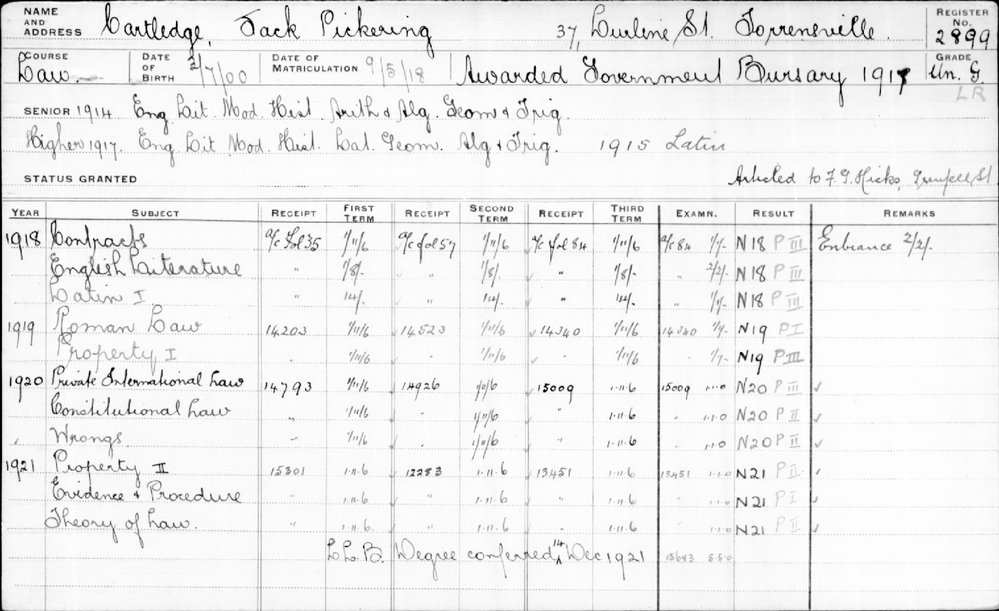 NAME AND ADDRESS Cartledge, Jack Pickering 37, Lurline St. Torrensville. REGISTER No. 2899
COURSE Law. DATE OF BIRTH 2/7/00 DATE OF MATRICULATION 9/5/18 Awarded Government Bursary 1917 GRADE Un. G.
LR
SENIOR 1914 Eng Lit Mod. Hist. Arith & Alg. Geom & Trig.
Higher 1917. Eng Lit Mod. Hist. Lat. Geom. Alg & Trig. 1915 Latin
STATUS GRANTED Articled to F. G. Hicks, Grenfell St
YEAR SUBJECT RECEIPT FIRST TERM RECEIPT SECOND TERM RECEIPT THIRD TERM EXAMN. RESULT REMARKS
1918 Contracts a/c fol 35 1/11/6 a/c fol 57 1/11/6 a/c fol 84 1/11/6 a/c 84 1/1/- N18 P III Entrance 2/2/-
English Literature " 1/8/- " 1/8/- " 1/8/- " 2/2/- N18 P III
Latin I " 14/- " 14/- " 14/- " 1/1/- N18 P III
1919 Roman Law 14203 1/11/6 14523 1/11/6 14340 1/11/6 14340 1/1/- N19 P I
Property I 1/11/6 1/11/6 1/11/6 1/1/- N19 P III
1920 Private International Law 14793 1/11/6 14926 1/11/6 15009 1·11·6 15009 1·1·0 N20 P III ✓
Constitutional Law " 1/11/6 " 1/11/6 " 1·11·6 1·1·0 N20 P II ✓
" Wrongs. " 1/11/6 " 1/11/6 " 1·11·6 1·1·0 N20 P II ✓
1921 Property II 15301 1·11·6 12283 1·11·6 13451 1·11·6 13451 1·1·0 N21 P II ✓
Evidence & Procedure " 1·11·6 " 1·11·6 " 1·11·6 " 1·1·0 N21 P I ✓
Theory of Law. " 1·11·6 " 1·11·6 " 1·11·6 " 1·1·0 N21 P II ✓
L.L.B. Degree conferred 14 Dec 1921 15693 5·5·0